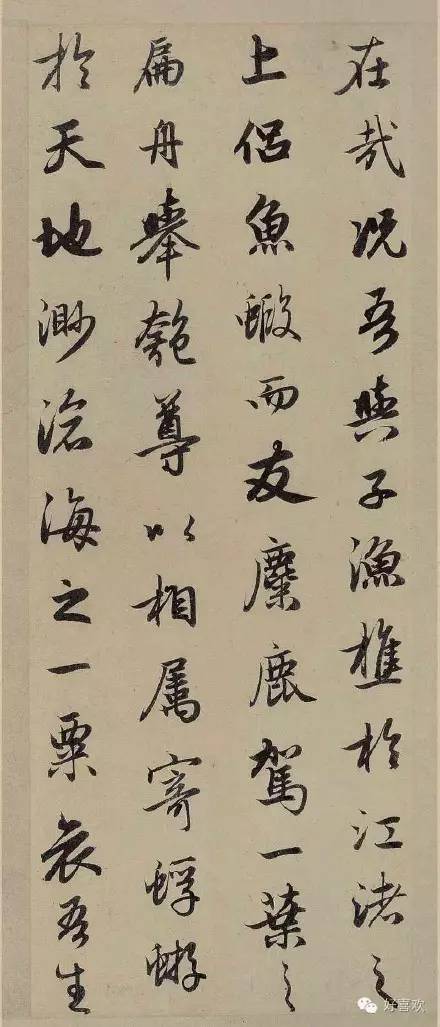 在哉況吾與子漁樵於江渚之
上侶魚蝦而友麋鹿駕一葉之
扁舟舉匏尊以相属寄蜉蝣
於天地渺滄海之一粟哀吾生
好喜欢